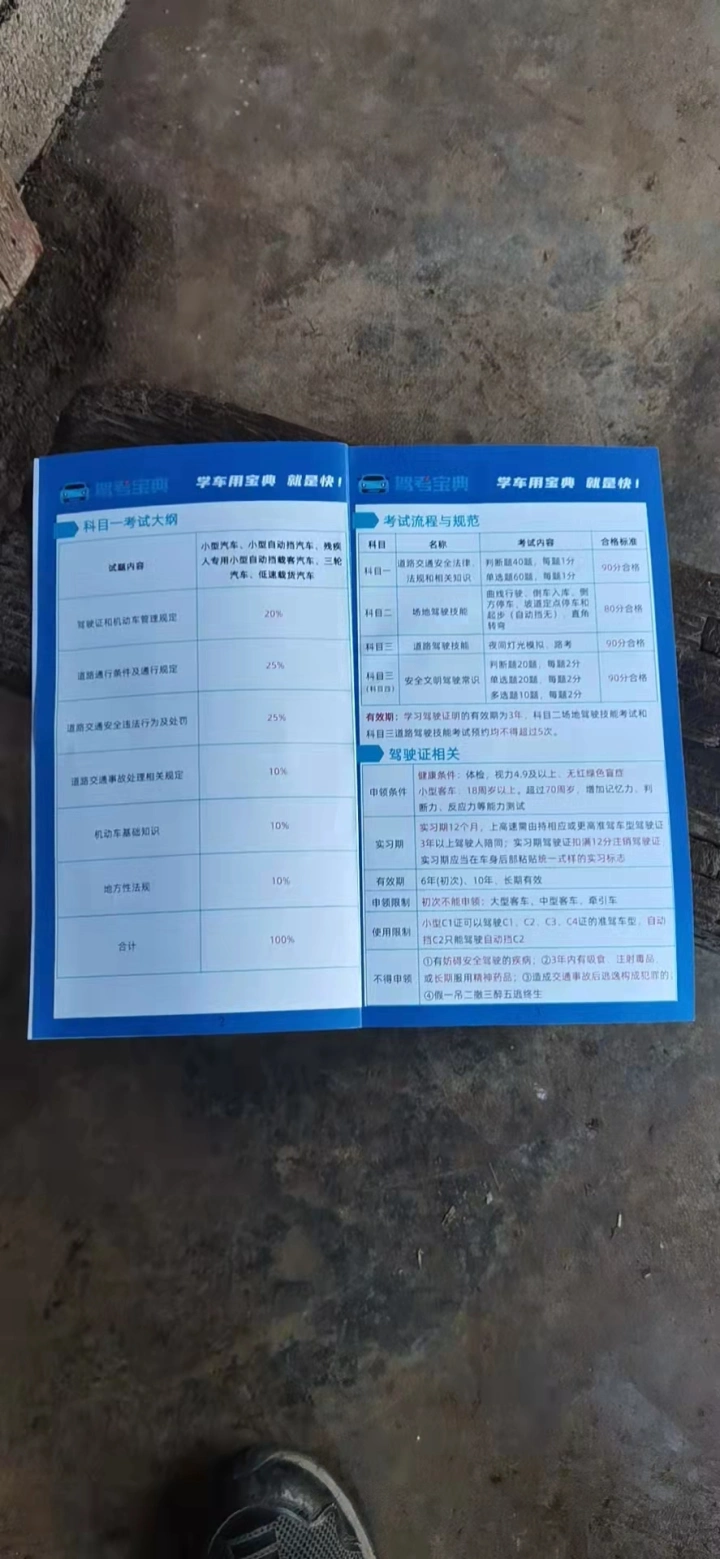 驾考宝典 学车用宝典 就是快!
科目一考试大纲
试题内容
小型汽车、小型自动挡汽车、残疾
人专用小型自动挡载客汽车、三轮
汽车、低速载货汽车
驾驶证和机动车管理规定 20%
道路通行条件及通行规定 25%
道路交通安全违法行为及处罚 25%
道路交通事故处理相关规定 10%
机动车基础知识 10%
地方性法规 10%
合计 100%
驾考宝典 学车用宝典 就是快!
考试流程与规范
科目 名称 考试内容 合格标准
科目一
道路交通安全法律、
法规和相关知识
判断题40题,每题1分
单选题60题,每题1分
90分合格
科目二
场地驾驶技能
曲线行驶、倒车入库、侧
方停车、坡道定点停车和
起步(自动挡无)、直角
转弯
80分合格
科目三 道路驾驶技能 夜间灯光模拟、路考 90分合格
科目三
(科目四)
安全文明驾驶常识
判断题20题,每题2分
单选题20题,每题2分
多选题10题,每题2分
90分合格
有效期:学习驾驶证明的有效期为3年,科目二场地驾驶技能考试和
科目三道路驾驶技能考试预约均不得超过5次。
驾驶证相关
申领条件
健康条件:体检,视力4.9及以上,无红绿色盲症
小型客车:18周岁以上。超过70周岁,增加记忆力、判
断力、反应力等能力测试
实习期
实习期12个月,上高速需由持相应或更高准驾车型驾驶证
3年以上驾驶人陪同;实习期驾驶证扣满12分注销驾驶证
实习期应当在车身后部粘贴统一式样的实习标志
有效期 6年(初次)、10年、长期有效
申领限制 初次不能申领:大型客车、中型客车、牵引车
使用限制
小型C1证可以驾驶C1、C2、C3、C4证的准驾车型,自动
挡C2只能驾驶自动挡C2
不得申领
①有妨碍安全驾驶的疾病;②3年内有吸食、注射毒品,
或长期服用精神药品;③造成交通事故后逃逸构成犯罪的;
④假一吊二撤三醉五逃终生